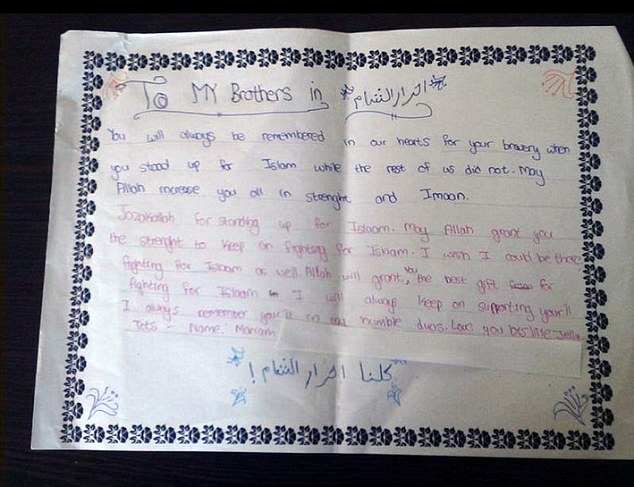 To MY Brothers in احرار الشام
You will always be remembered in our hearts for your bravery when
you stood up for Islam while the rest of us did not. May
Allah increase you all in strenght and Imaan.
Jazakallah for standing up for Islaam. May Allah grant you
the strenght to keep on fighting for Islaam. I wish I could be there
fighting for Islaam as well. Allah will grant you the best gift for
fighting for Islaam I will always keep on supporting you'll
I always remember you'll in humble duas. Love you
Jets - Name: Mariam
كلنا احرار الشام !